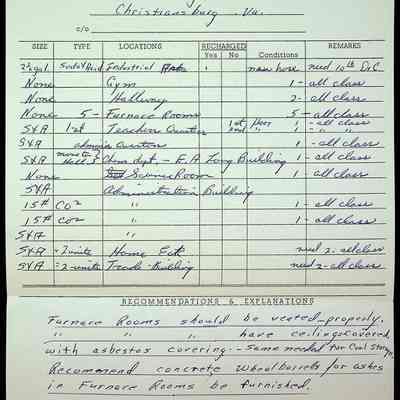 Christiansburg Va.
c/o
SIZE TYPE LOCATIONS RECHARGED Yes No Conditions REMARKS
2½gal Soda & Acid Industrial Arts new hose need 10th Dec
None Gym 1 - all class
None Hallway 2 - all class
None 5 - Furnace Rooms 5 - all class
S&A 1st Teachers Quarters 1st Poor 1 - all class
2nd " 1 - " "
S&A admin Quarters 1 - all class
S&A Chem dept. - E.A. Long Building 1 - all class
None Science Room 1 - all class
S&A Administration Building
15# CO² " 1 - all class
15# CO² " 1 - all class
S&A "
S&A = 2 units Home Eck need 2 - all class
S&A = 2 units Trade - Building need 2 - all class
RECOMMENDATIONS & EXPLANATIONS
Furnace Rooms should be vented properly.
" " " have ceilings covered
with asbestos covering - Same needed for Coal Storage.
Recommend concrete Wheelbarrels for ashes
in Furnace Rooms be furnished.